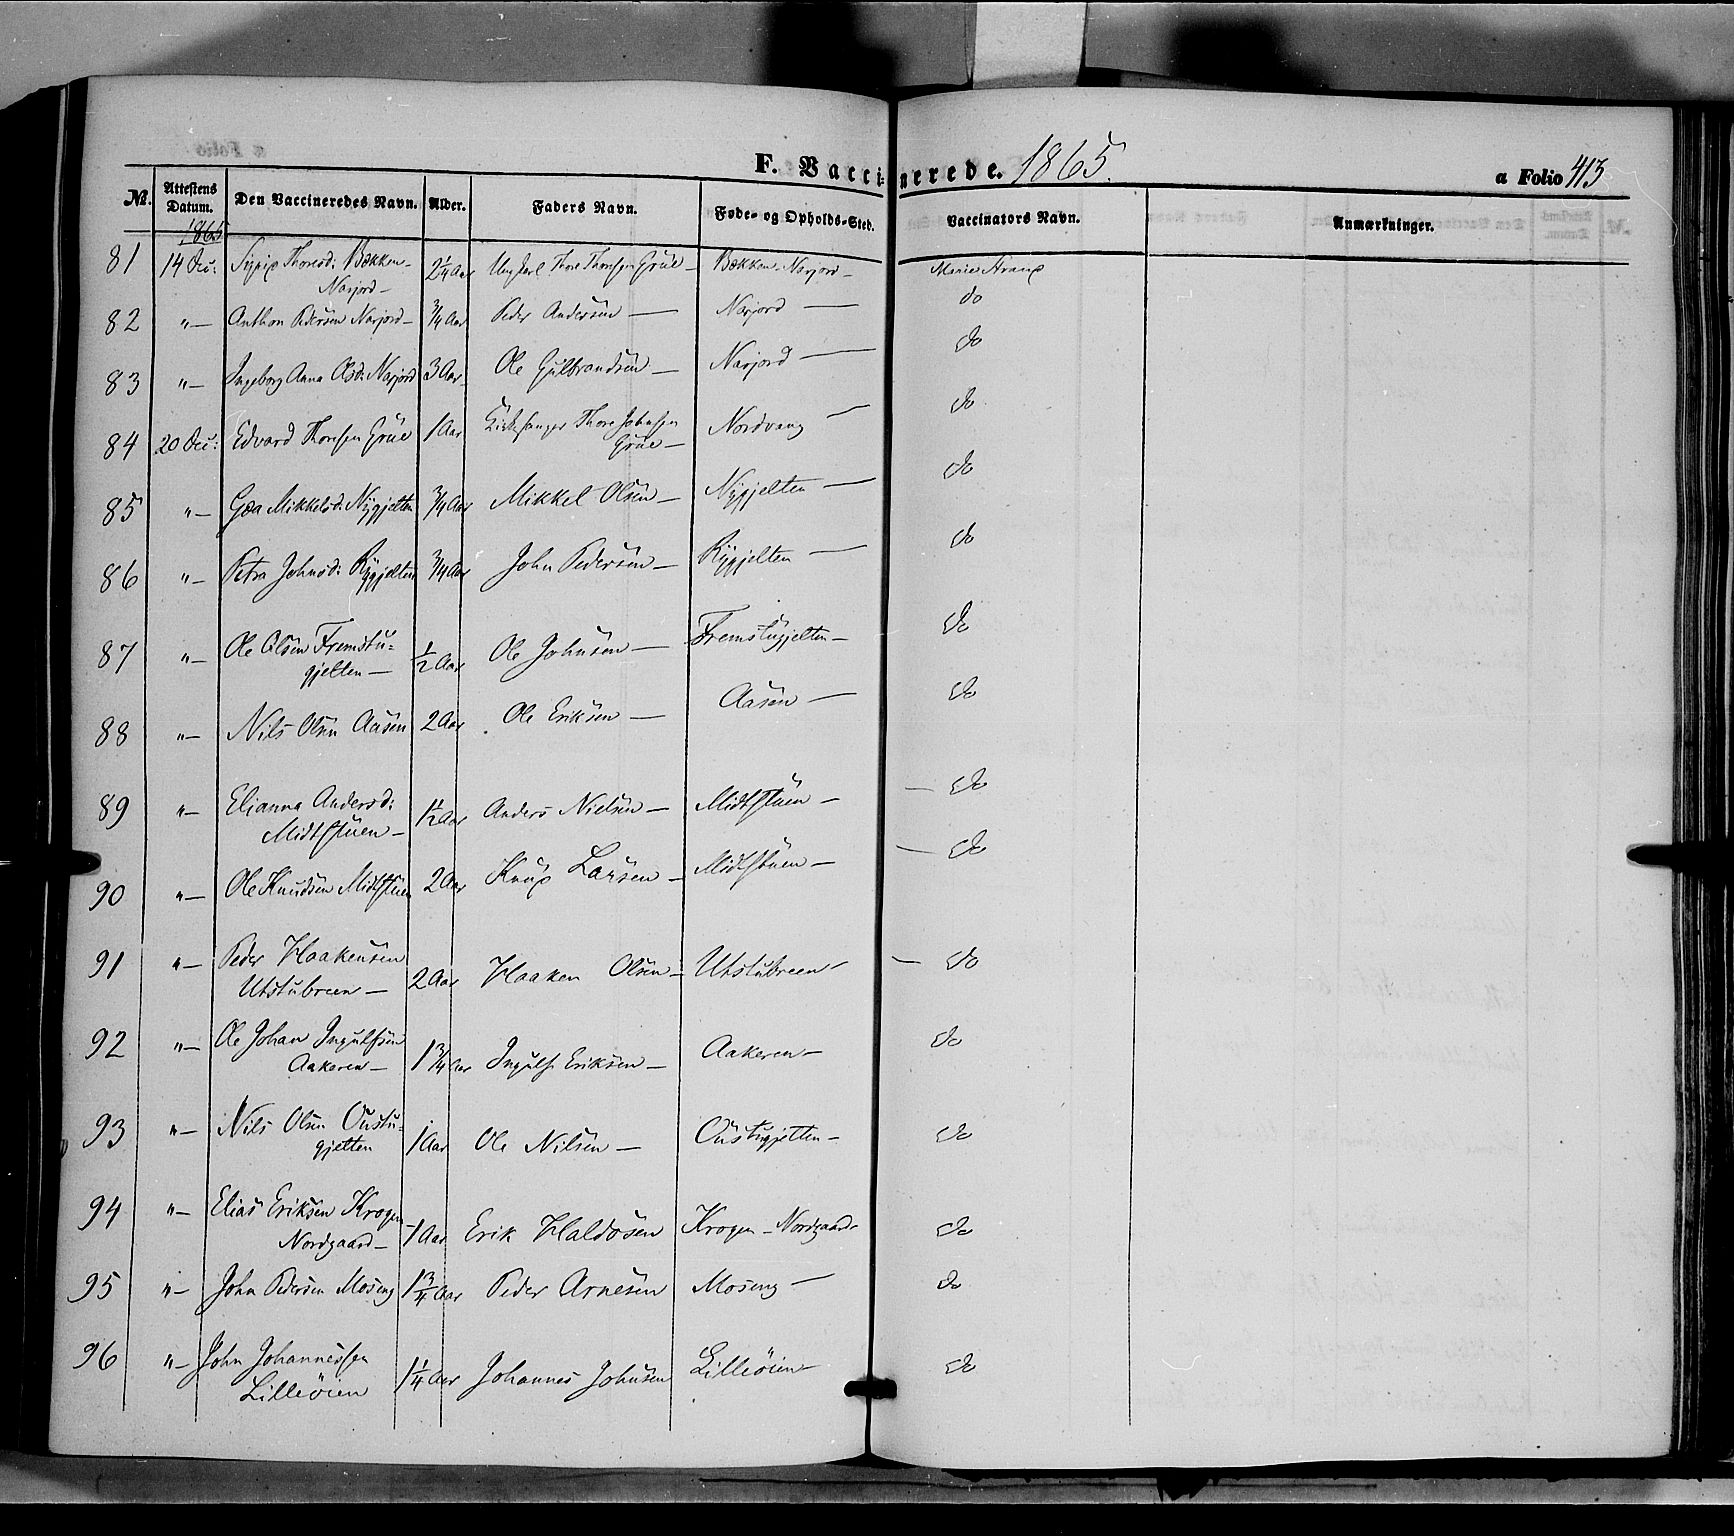 F. Vaccinerede. 1865.
a Folio 413
№. Attestens Datum. Den Vaccineredes Navn. Alder. Faders Navn. Føde- og Opholds-Sted. Vaccinators Navn. Anmærkninger.
1865
81 14 Dec: Thoresd: Bækken- 2 1/4 Aar Ungkarl Thore Thoresen Grüe — Bækken-Narjord — Marie
Narjord —
82 "— Anthon Pedersen Narjord — 3/4 Aar Peder Andersen — Narjord — do
83 "— Ingeborg Anna Olsd: Narjord 3 Aar- Ole Gulbrandsen — Narjord — do
84 20 Dec: Edvard Thoresen Grüe 1 Aar Kirkesanger Thore Johnsen Nordvang — do
Grüe —
85 "— Goa Mikkelsd: Nygjelten 3/4 Aar Mikkel Olsen — Nygjelten — do
86 "— Petra Johnsd: Rygjelten 3/4 Aar John Pedersen — Rygjelten — do
87 "— Ole Olsen Fremstu= 1/2 Aar Ole Johnsen — Fremstugjelten — do
gjelten —
88 "— Nils Olsen Aasen 2 Aar Ole Eriksen — Aasen — do
89 "— Elianna Andersd: 1 1/2 Aar Anders Nielsen — Midtstuen — — do
Midtstuen —
90 "— Ole Knudsen Midtstuen 2 Aar Knud Larsen — Midtstuen — — do
91 "— Peder Haakensen 2 Aar Haaken Olsen — Utstubreen — — do
Utstubreen —
92 "— Ole Johan Ingulfsen 1 3/4 Aar Ingulf Eriksen — Aakeren — do
Aakeren —
93 "— Nils Olsen Oustu- 1 Aar Ole Nilsen — Oustugjelten — do
gjelten
94 "— Elias Eriksen Krogen- 1 Aar Erik Haldosen Krogen - Nordgaard- do
Nordgaard —
95 "— John Pedersen Moseng 1 3/4 Aar Peder Arnesen Moseng — do
96 "— John Johannessen 1 1/4 Aar Johannes Johnsen Lilleöien — do
Lilleöien